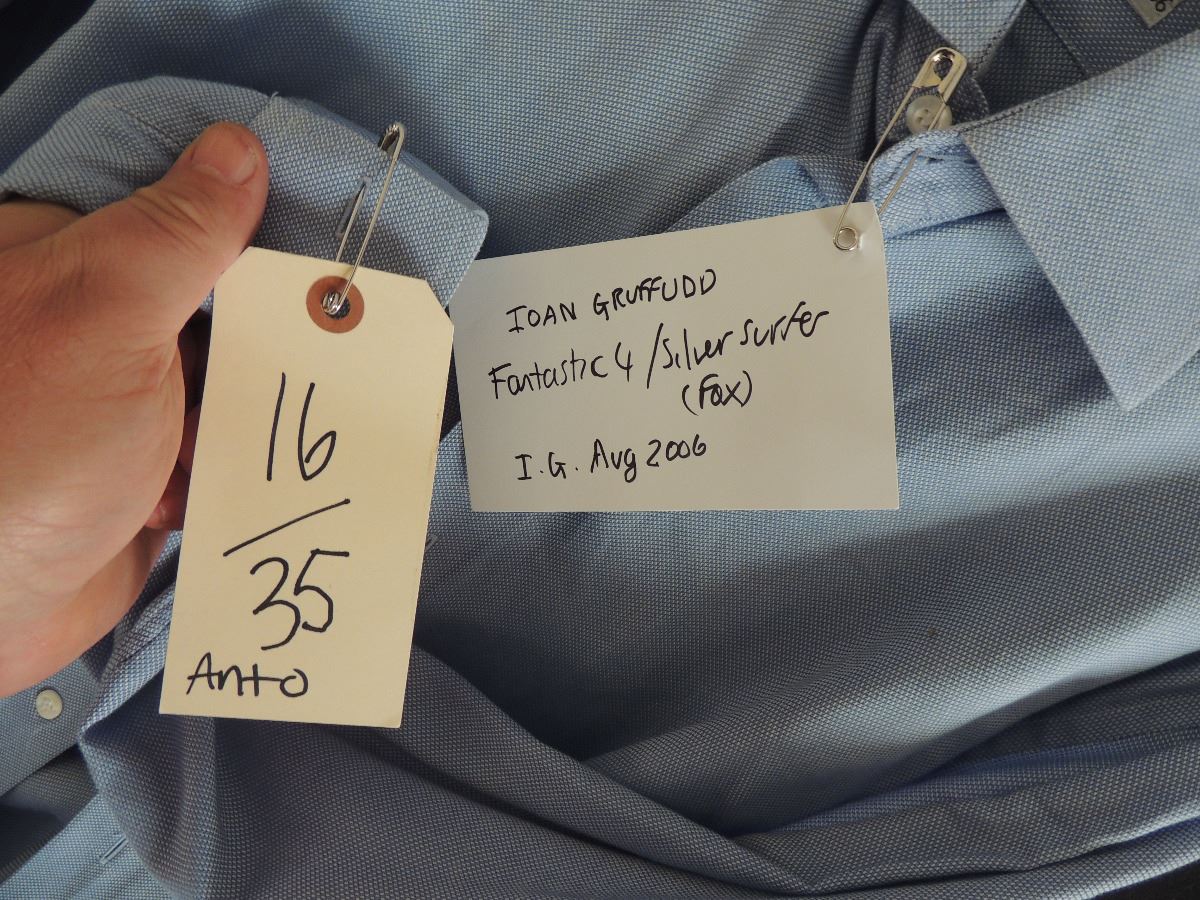 16
35
Anto
IOAN GRUFFUDD
Fantastic 4 / Silver Surfer
(Fox)
I.G. Aug 2006